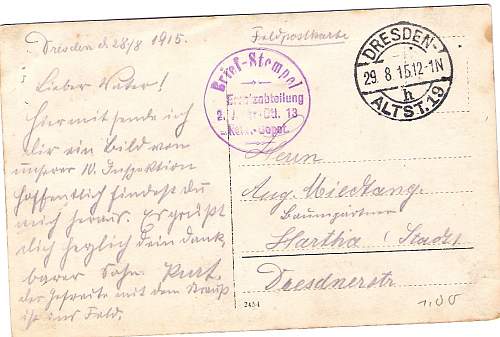 Dresden d. 28/8 1915.
Feldpostkarte
Lieber Vater!
Hiermit sende ich
dir ein Bild von
unserer 10. Inspektion
hoffentlich findest du
mich heraus. Es grüßt
dich herzlich dein dank-
barer Sohn. Kurt.
der Gefreite mit dem Strauß
ist ins Feld.
Brief-Stempel
Ersatzabteilung
13
DRESDEN-
29. 8. 15. 12-1N
h
ALTST. 19
Herrn
Aug. Miedtang.
Baumgartner
Hartha (Stadt)
Dresdnerstr.
2454
1,00